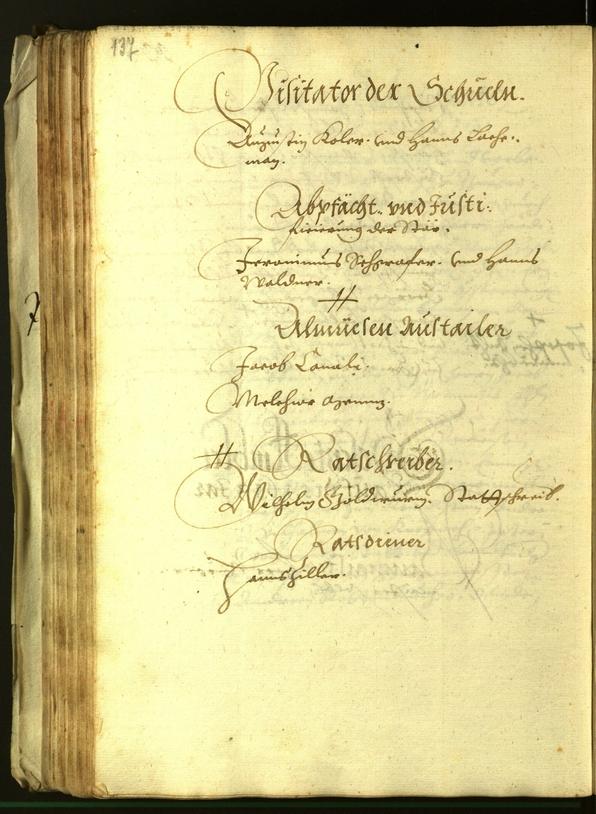 137
Visitator der Schueln.
Augustin Koler. und Hanns Lache,,
man.
Abpfächt. und Justi:
ficierung der Stär.
Jeronimus Schrofer. und Hanns
Waldner.
Almuesen Austailer
Jacob Canali.
Melchior
Ratschreiber.
Wilhelm Goldwurm. Statschreib.
Ratsdiener
Hanns Hiller.